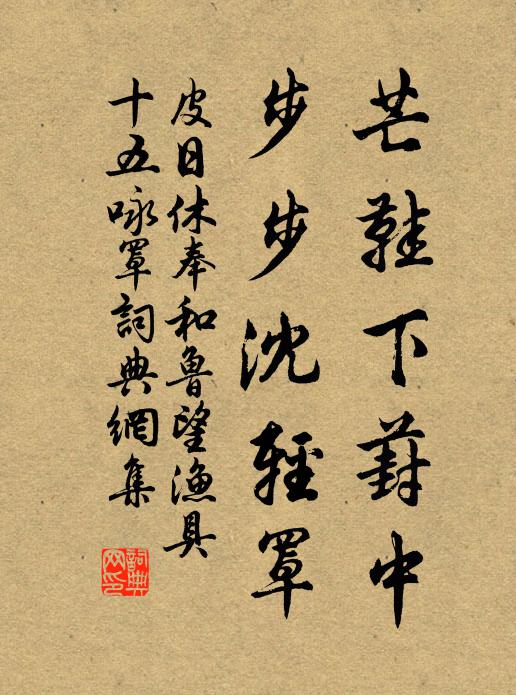 芒鞋下葑中
步步沈輕罩
皮日休奉和魯望漁具
十五咏罩詞典網集
詞典网印